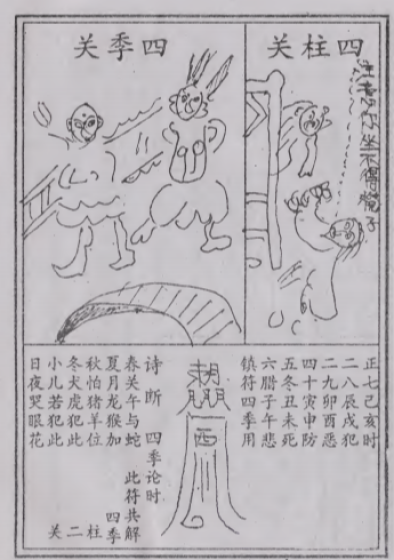 四柱关
注意你坐不得子
四季关
正七己亥时
二八辰戌犯
二九卯酉恶
四十寅申防
五冬丑未死
六腊子午悲
镇符四季用
西
诗断 四季论时
春关午与蛇
夏月龙猴加
秋怕猪羊位
冬犬虎犯此
小儿若犯此
日夜哭眼花
此符共解
四季柱二关